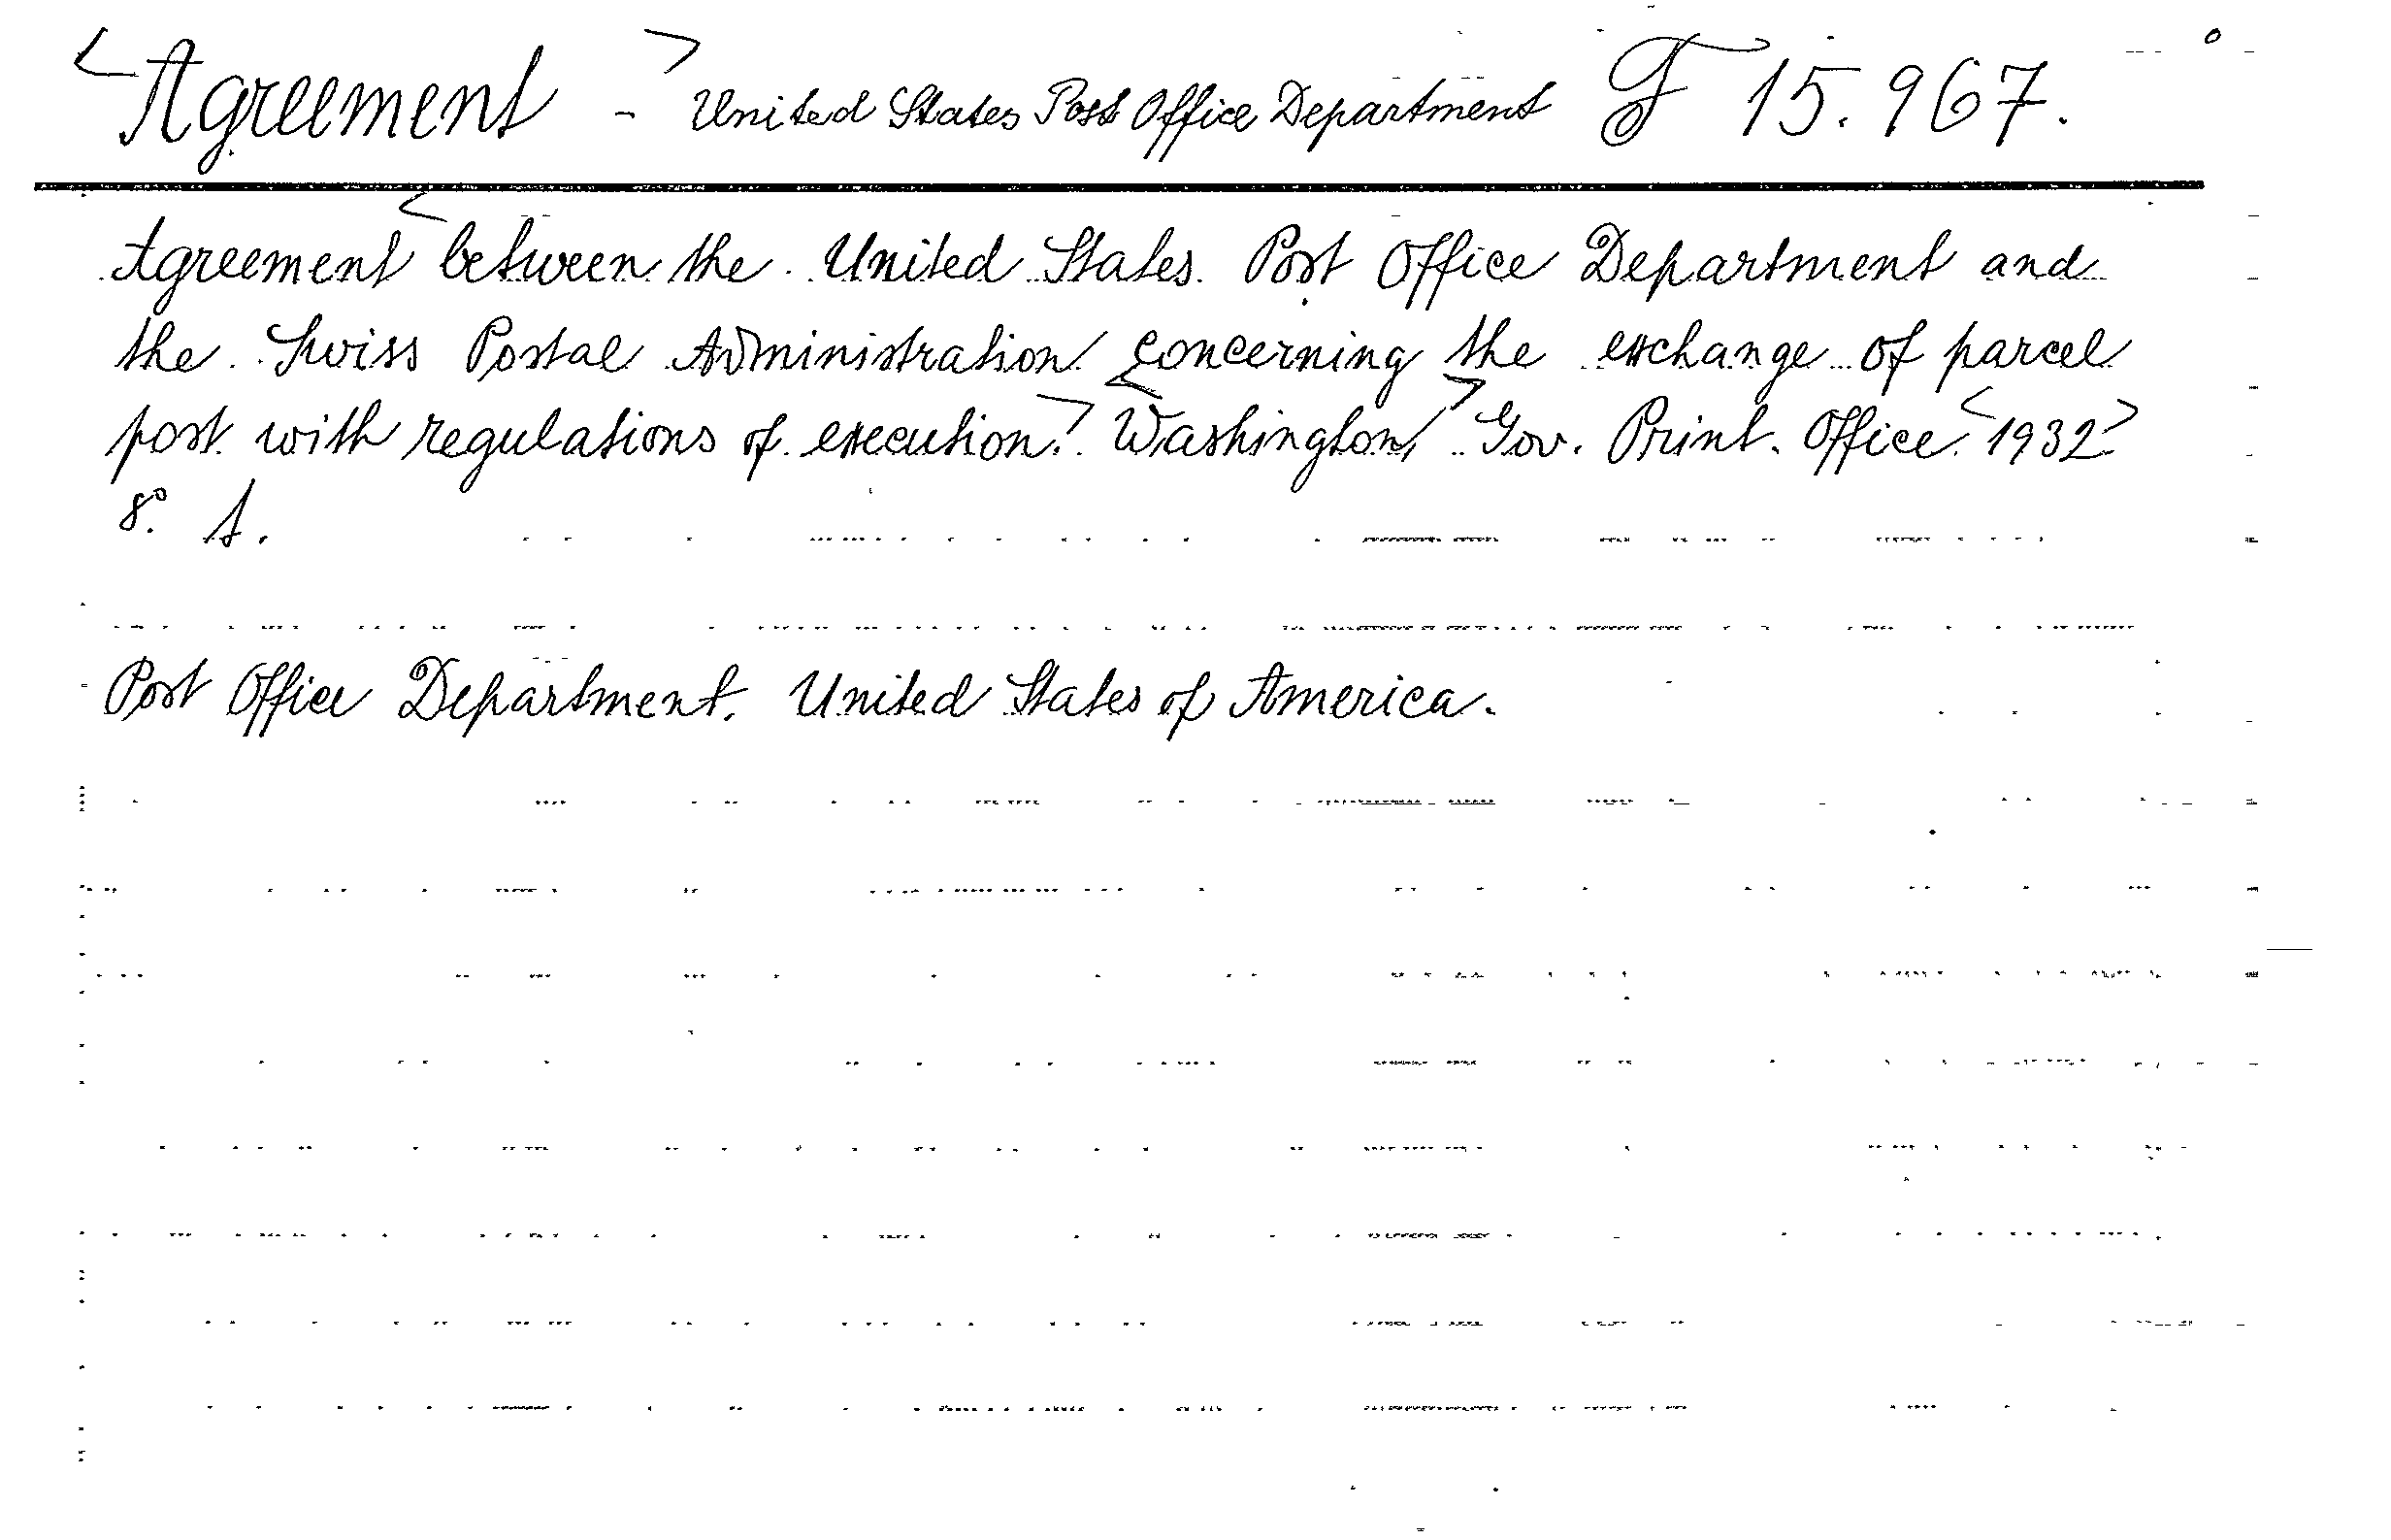 Agreement - United States Post Office Department F 15.967.
Agreement between the United States Post Office Department and
the Swiss Postal Administration concerning the exchange of parcel
post with regulations of execution. Washington, Gov. Print. Office. 1932.
8°. A.
Post Office Department. United States of America.